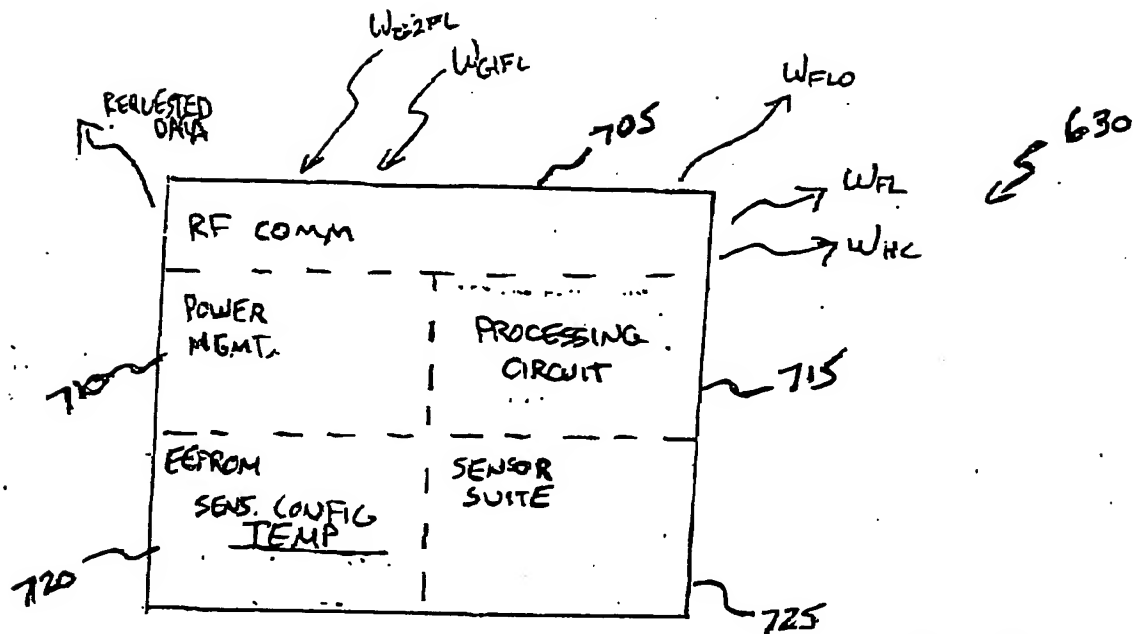 WG2FL
WG1FL
WFLO
REQUESTED
DATA
705
630
WFL
RF COMM
WHC
POWER
MGMT.
PROCESSING
CIRCUIT
710
715
EEPROM
SENS. CONFIG
TEMP
SENSOR
SUITE
720
725